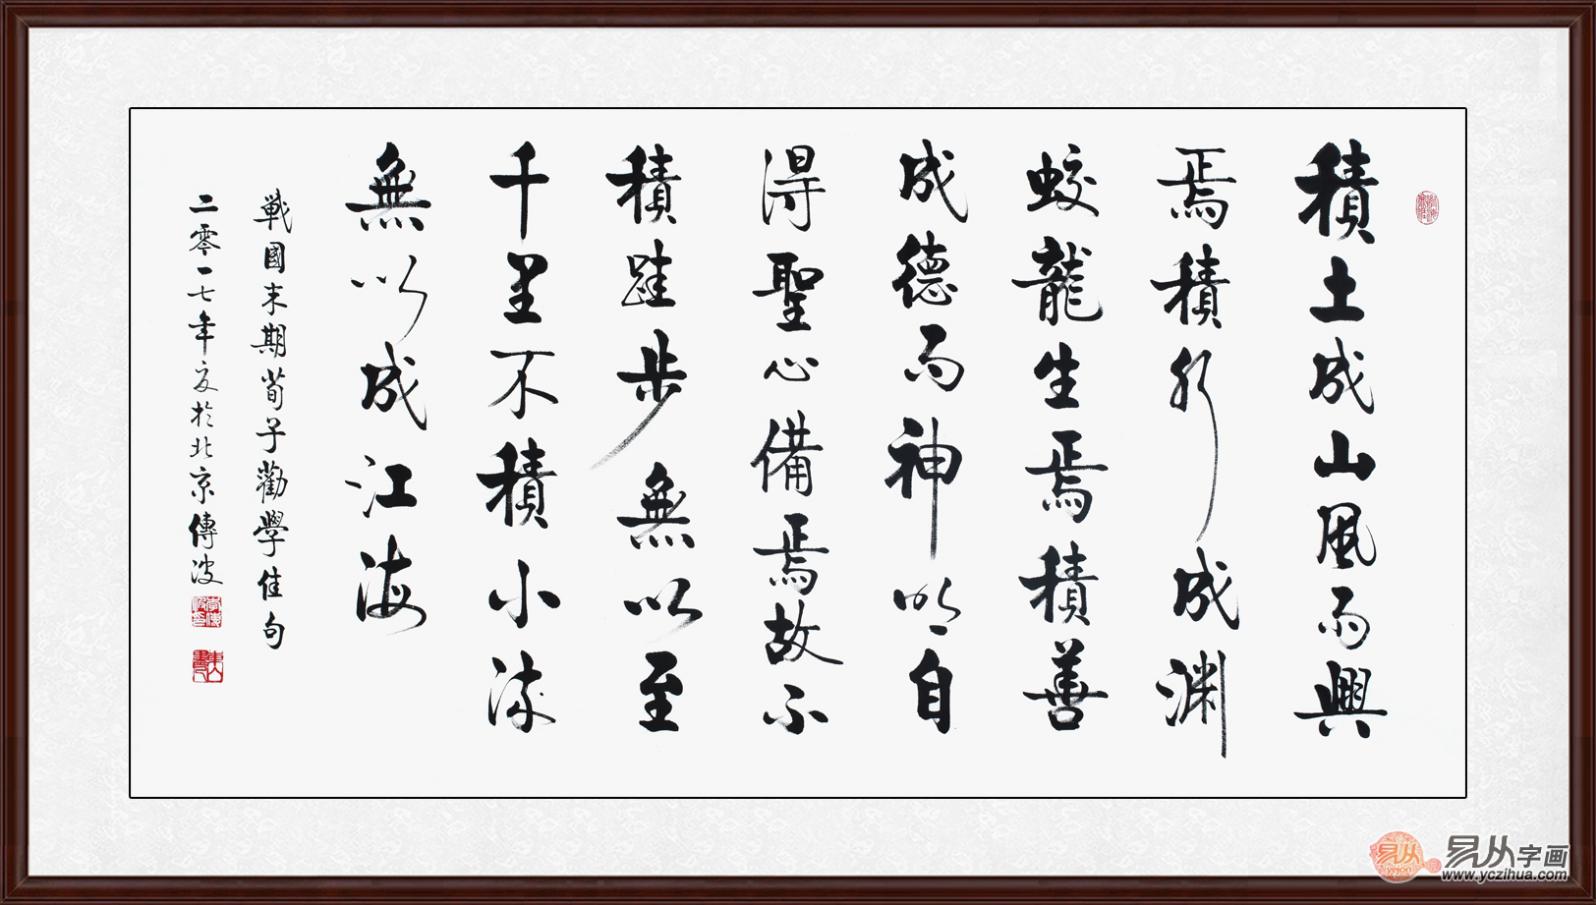 積土成山風雨興
焉積水成淵
蛟龍生焉積善
成德而神明自
得聖心備焉故不
積跬步無以至
千里不積小流
無以成江海
戰國末期荀子勸學佳句
二零一七年夏於北京傳波
易从字画
www.yczihua.com